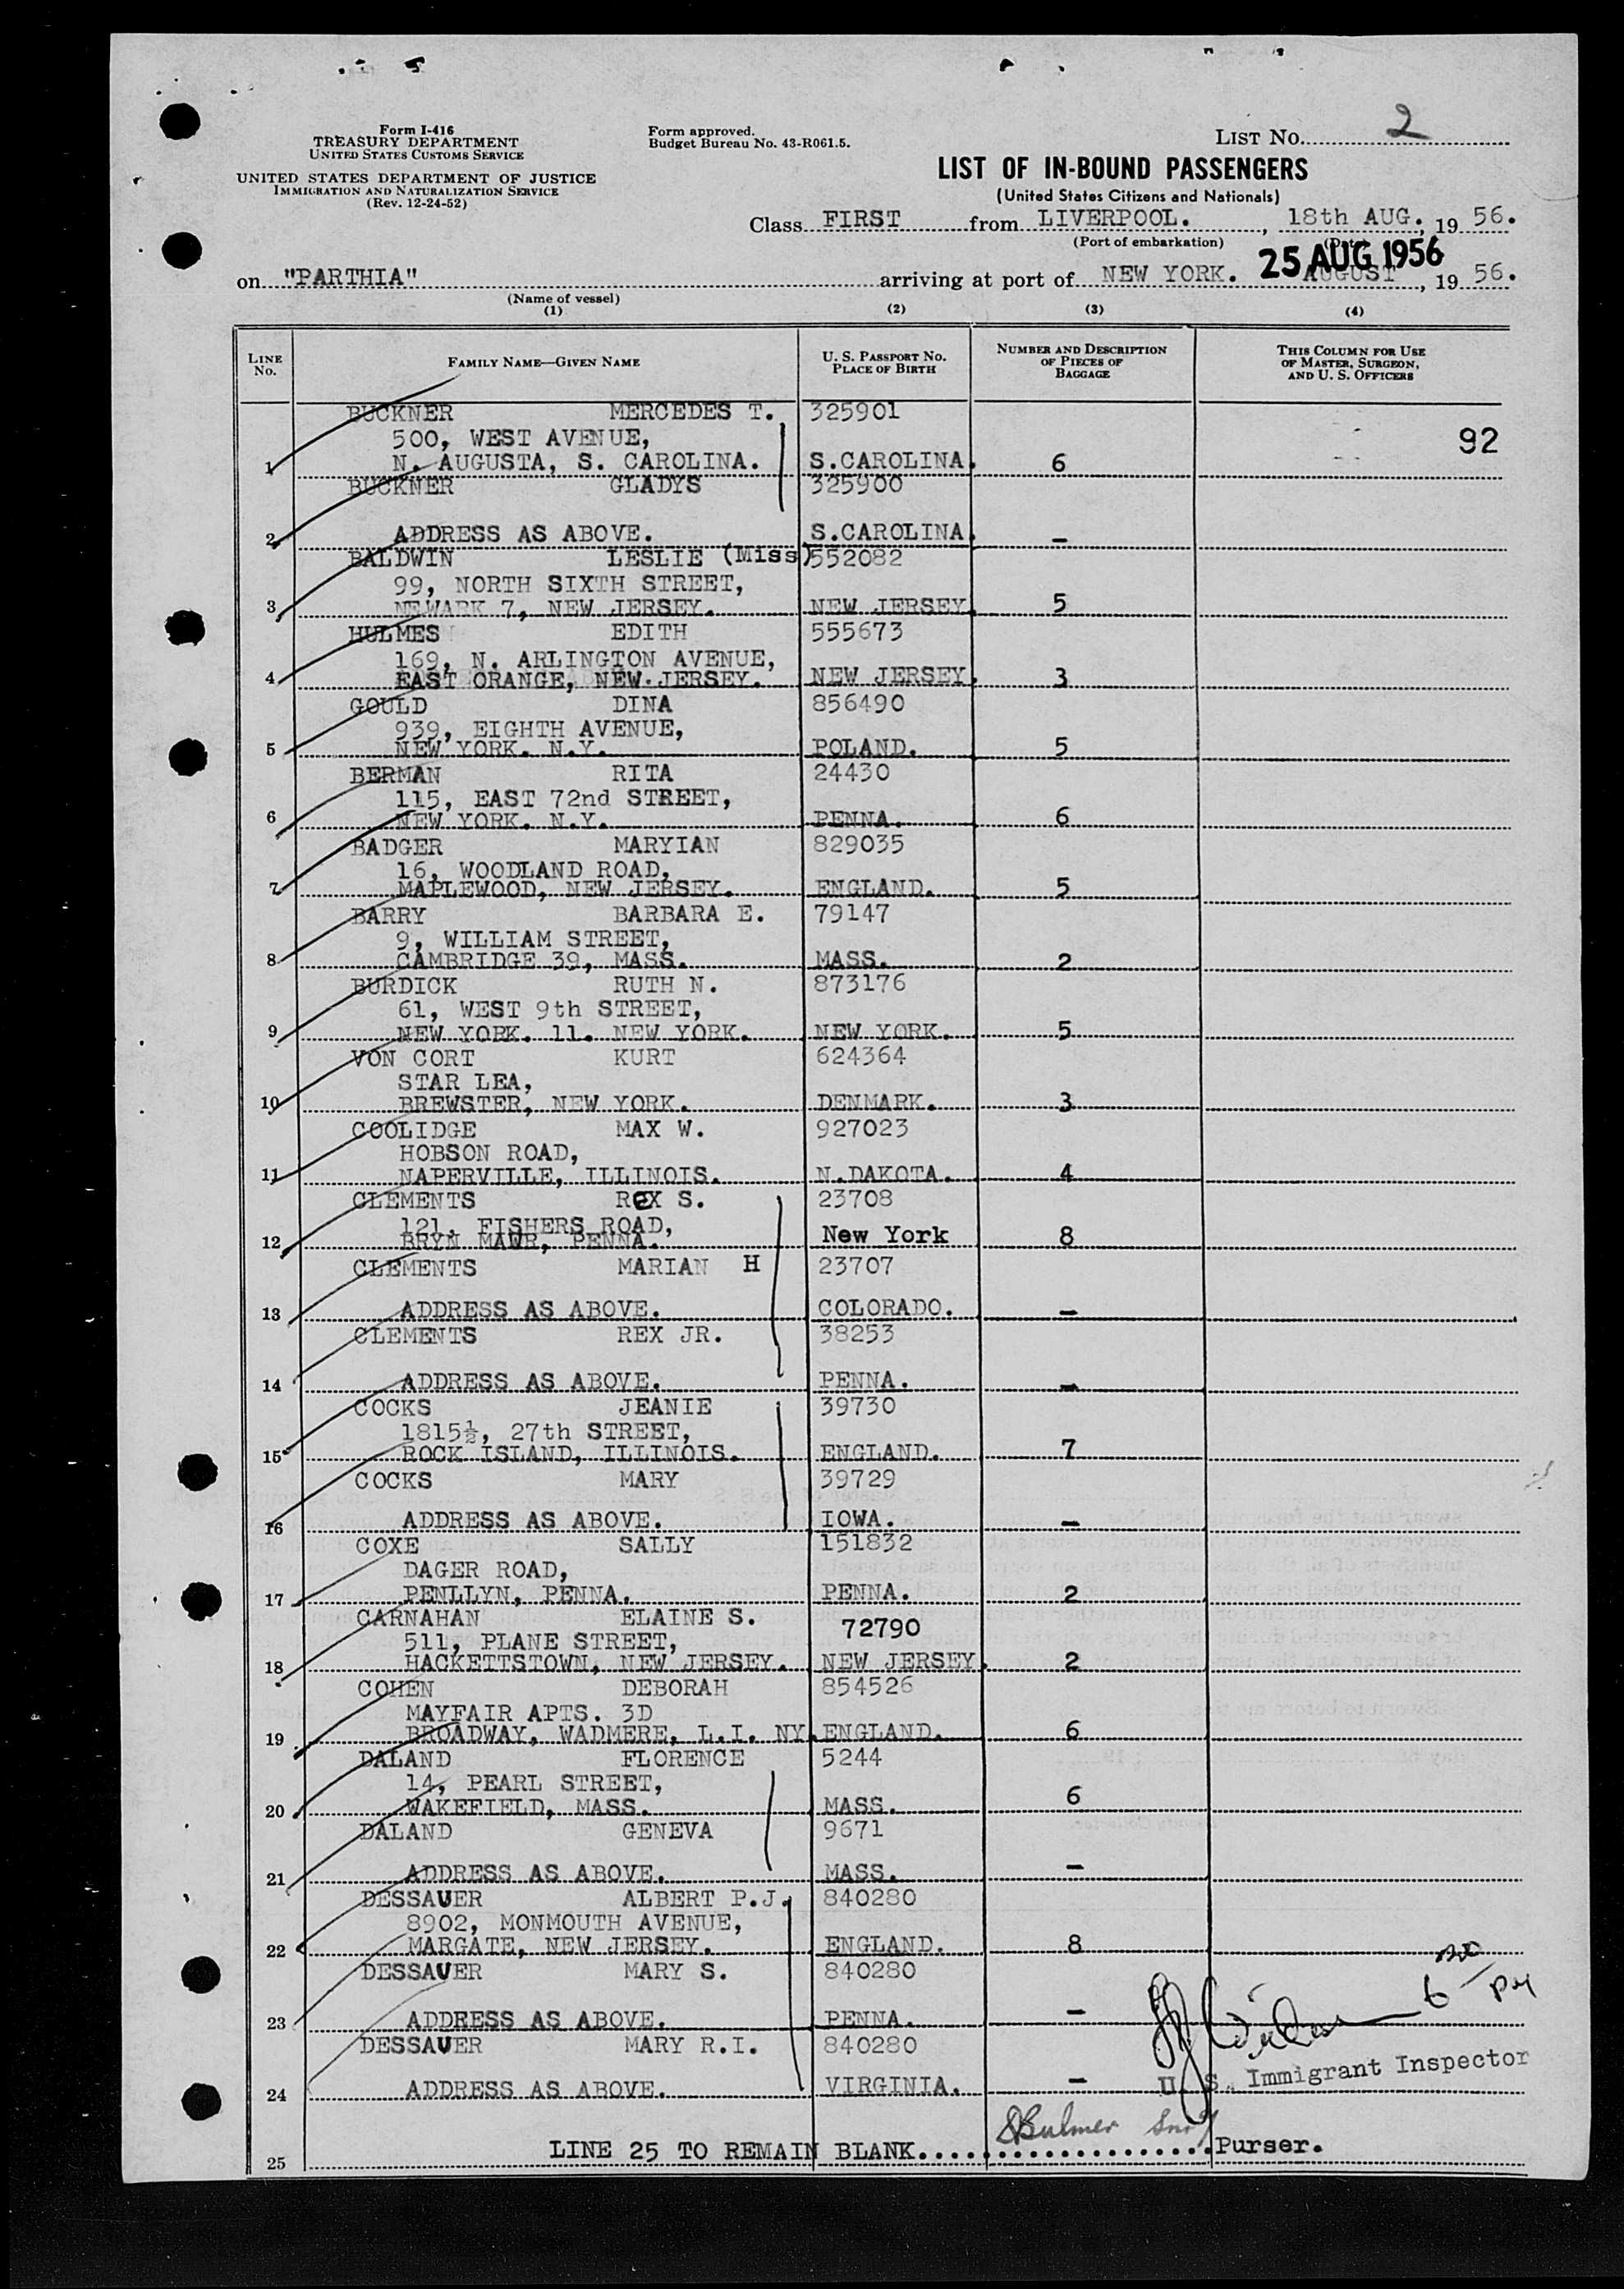 Form I-416
TREASURY DEPARTMENT
UNITED STATES CUSTOMS SERVICE
UNITED STATES DEPARTMENT OF JUSTICE
IMMIGRATION AND NATURALIZATION SERVICE
(Rev. 12-24-52)
Form approved.
Budget Bureau No. 43-R061.5.
LIST No. 2
LIST OF IN-BOUND PASSENGERS
(United States Citizens and Nationals)
Class FIRST from LIVERPOOL. , 18th AUG. , 19 56.
(Port of embarkation) (Date)
25 AUG 1956
on "PARTHIA" arriving at port of NEW YORK. AUGUST , 19 56.
(Name of vessel)
(1) (2) (3) (4)
LINE No. FAMILY NAME—GIVEN NAME U. S. PASSPORT NO. PLACE OF BIRTH NUMBER AND DESCRIPTION OF PIECES OF BAGGAGE THIS COLUMN FOR USE OF MASTER, SURGEON, AND U. S. OFFICERS
BUCKNER MERCEDES T. 325901
500, WEST AVENUE, 92
1 N. AUGUSTA, S. CAROLINA. S.CAROLINA. 6
BUCKNER GLADYS 325900
2 ADDRESS AS ABOVE. S.CAROLINA. —
BALDWIN LESLIE (Miss) 552082
99, NORTH SIXTH STREET,
3 NEWARK 7, NEW JERSEY. NEW JERSEY. 5
HULMES EDITH 555673
169, N. ARLINGTON AVENUE,
4 EAST ORANGE, NEW JERSEY. NEW JERSEY. 3
GOULD DINA 856490
939, EIGHTH AVENUE,
5 NEW YORK. N.Y. POLAND. 5
BERMAN RITA 24430
115, EAST 72nd STREET,
6 NEW YORK. N.Y. PENNA. 6
BADGER MARYIAN 829035
16, WOODLAND ROAD,
7 MAPLEWOOD, NEW JERSEY. ENGLAND. 5
BARRY BARBARA E. 79147
9, WILLIAM STREET,
8 CAMBRIDGE 39, MASS. MASS. 2
BURDICK RUTH N. 873176
61, WEST 9th STREET,
9 NEW YORK. 11. NEW YORK. NEW YORK. 5
VON CORT KURT 624364
STAR LEA,
10 BREWSTER, NEW YORK. DENMARK. 3
COOLIDGE MAX W. 927023
HOBSON ROAD,
11 NAPERVILLE, ILLINOIS. N.DAKOTA. 4
CLEMENTS REX S. 23708
121, FISHERS ROAD,
12 BRYN MAWR, PENNA. New York 8
CLEMENTS MARIAN H 23707
13 ADDRESS AS ABOVE. COLORADO. —
CLEMENTS REX JR. 38253
14 ADDRESS AS ABOVE. PENNA. —
COCKS JEANIE 39730
1815½, 27th STREET,
15 ROCK ISLAND, ILLINOIS. ENGLAND. 7
COCKS MARY 39729
16 ADDRESS AS ABOVE. IOWA. —
COXE SALLY 151832
DAGER ROAD,
17 PENLLYN, PENNA. PENNA. 2
CARNAHAN ELAINE S. 72790
511, PLANE STREET,
18 HACKETTSTOWN, NEW JERSEY. NEW JERSEY. 2
COHEN DEBORAH 854526
MAYFAIR APTS. 3D
19 BROADWAY, WADMERE, L.I. NY. ENGLAND. 6
DALAND FLORENCE 5244
14, PEARL STREET,
20 WAKEFIELD, MASS. MASS. 6
DALAND GENEVA 9671
21 ADDRESS AS ABOVE. MASS. —
DESSAUER ALBERT P.J. 840280
8902, MONMOUTH AVENUE,
22 MARGATE, NEW JERSEY. ENGLAND. 8
DESSAUER MARY S. 840280
23 ADDRESS AS ABOVE. PENNA. —
DESSAUER MARY R.I. 840280
U. S. Immigrant Inspector
24 ADDRESS AS ABOVE. VIRGINIA. —
25 LINE 25 TO REMAIN BLANK. Bulmer Purser.